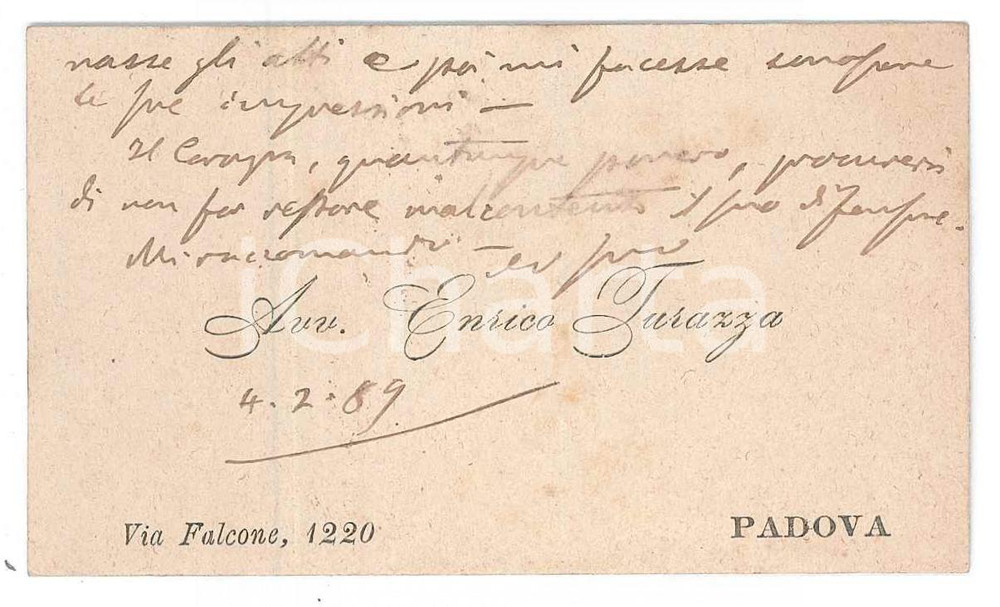 nasse gli atti e poi mi facesse conoscere
le sue impressioni —
Il quantunque povero, procurerà
di non far restare malcontento il suo difensore.
Mi raccomando — suo
Avv. Enrico Turazza
4.2.89
Via Falcone, 1220
PADOVA
iCharta